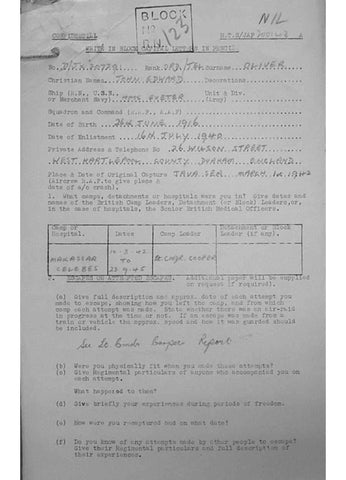 NIL
BLOCK
NO
D.N. 123
CONFIDENTIAL M.I.9/JAP/
WRITE IN BLOCK CAPITAL LETTERS IN PENCIL
No. Rank ORD/TEL Surname OLIVER
Christian Names. JOHN EDWARD Decorations.
Ship (R.N., U.S.N., or Merchant Navy) HMS EXETER Unit & Div. (Army)
Squadron and Command (R.A.F., A.A.F.)
Date of Birth JUNE 1916
Date of Enlistment 16TH JULY 1940
Private Address & Telephone No 26 WILSON STREET
WEST HARTLEPOOL COUNTY DURHAM ENGLAND
Place & Date of Original Capture JAVA SEA MARCH 1st 1942
(Aircrew R.A.F. to give place & date of a/c crash).
1. What camps, detachments or hospitals were you in? Give dates
and names of the British Camp Leaders, Detachment (or Block) Leaders, or,
in the case of hospitals, the Senior British Medical Officers.
Camp or Hospital. Dates Camp Leader Detachment or Block Leader (if any).
MAKASSAR CELEBES 10-3-42 TO 23-9-45 Lt Cmdr COOPER
2. ESCAPES OR ATTEMPTED ESCAPES. Additional paper will be supplied
on request if required).
(a) Give full description and approx. date of each attempt you
made to escape, showing how you left the camp, and from which
camp each attempt was made. State whether there was an air-raid
in progress at the time or not. If an escape was made from a
train or vehicle the approx. speed and how it was guarded should
be included.
See Lt Cmdr Cooper Report
(b) Were you physically fit when you made these attempts?
(c) Give Regimental particulars of anyone who accompanied you on
each attempt.
What happened to them?
(d) Give briefly your experiences during periods of freedom.
(e) How were you re-captured and on what date?
(f) Do you know of any attempts made by other people to escape?
Give their Regimental particulars and full description of
their experiences.